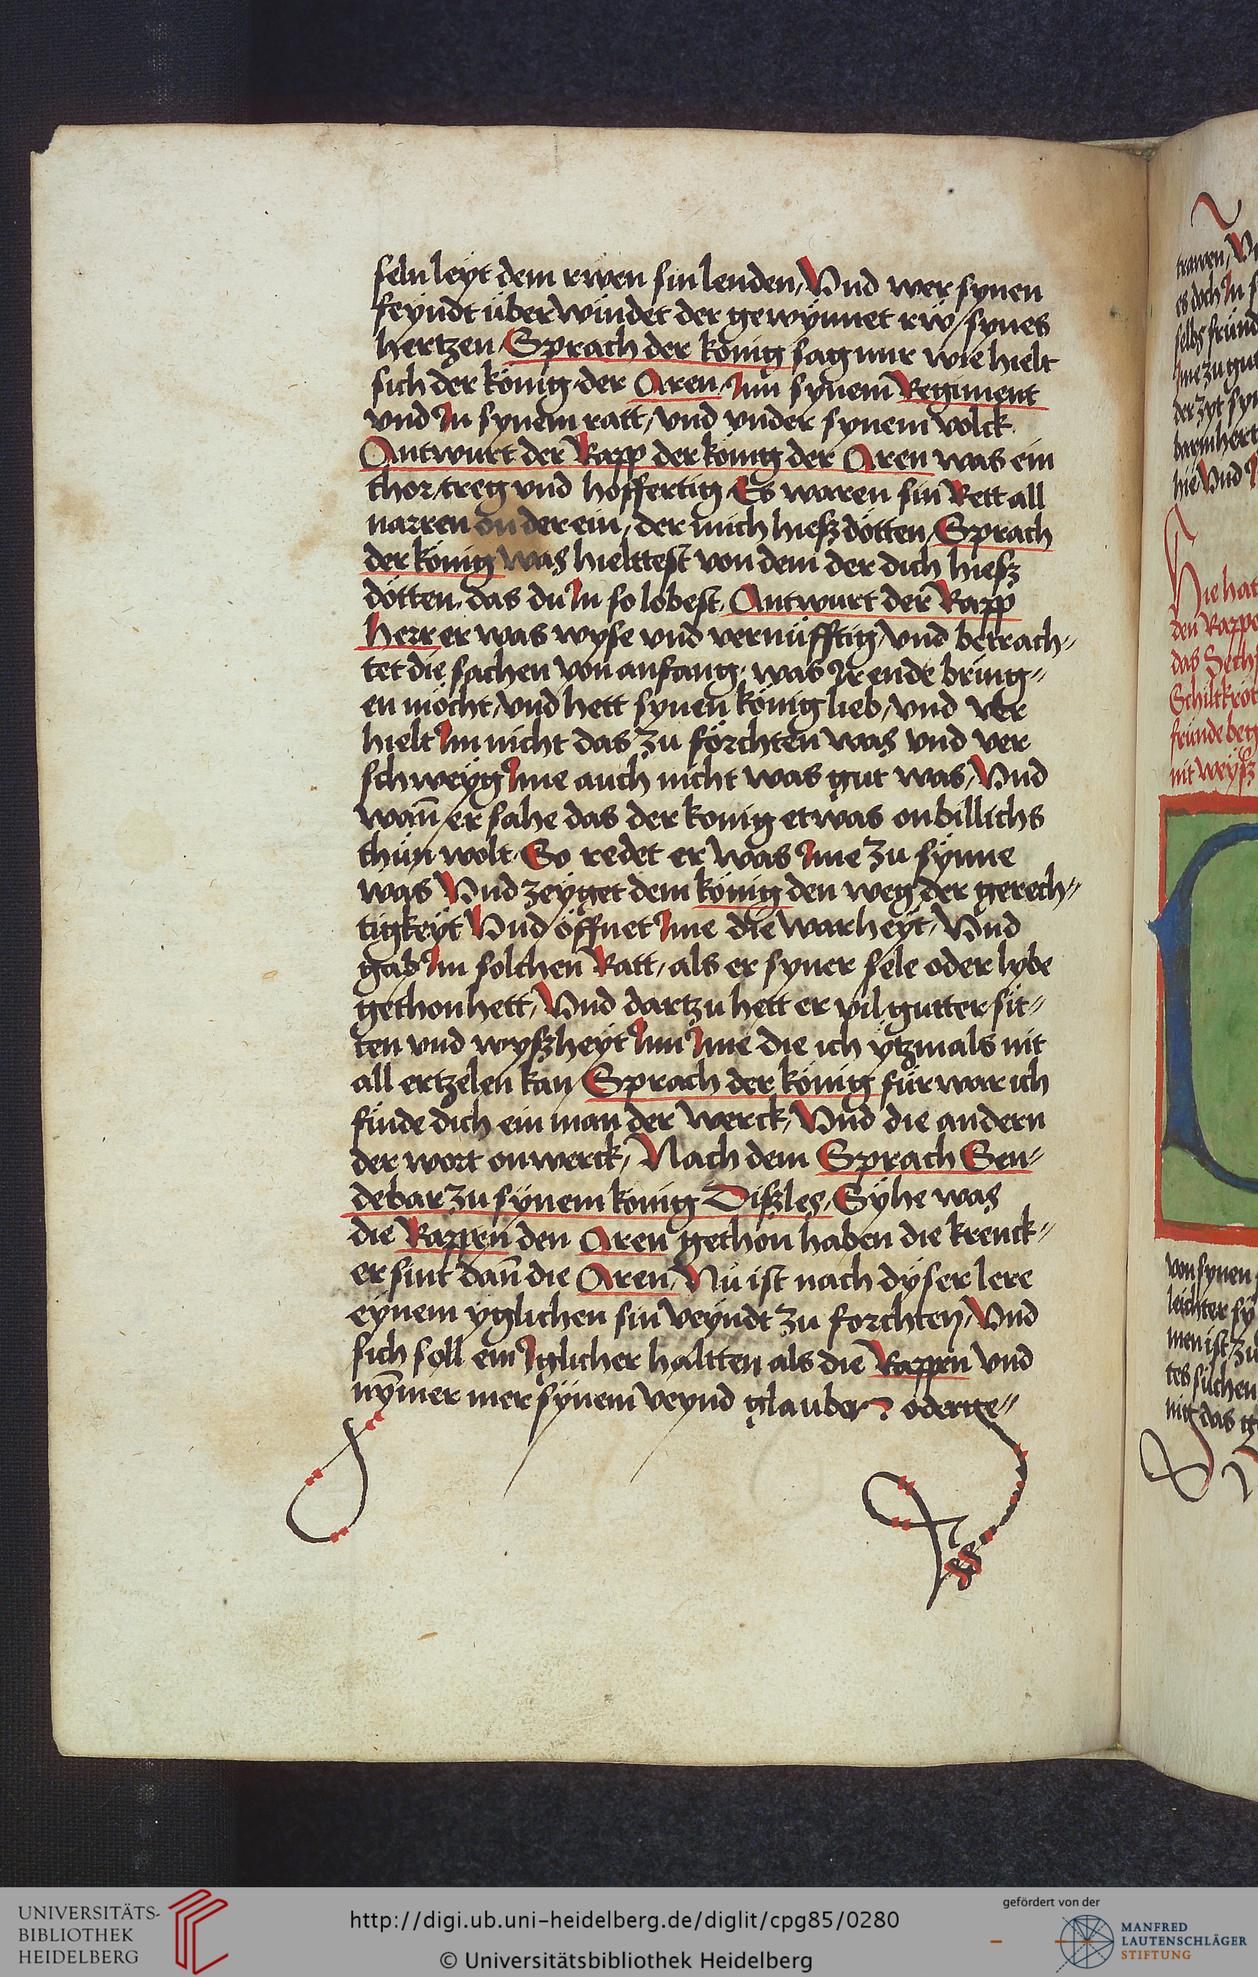 seln leyt dem rwen sin lenden, Vnd wer synen
feyndt überwindet der gewynnet rw synes
hertzen, Sprach der könig sag mir wie hielt
sich der könig der Aren Inn synem Regiment
vnd In synem ratt, vnd vnder synem volck
Antwurt der Rapp der könig der Aren was ein
thor, treg vnd hoffertig, Es waren sin Rett all
narren on der ein, der mich hiesz dötten, Sprach
der könig was hielttest von dem der dich hiesz
dötten, das du In so lobest, Antwurt der Rapp
Herr er was wyse vnd vernüfftig, vnd betrach„
tet die sachen von anfang, was Ir ende bring„
en möcht, vnd hett synen könig lieb, vnd ver
hielt Im nicht das zu förchten was vnd ver
schweyg Ime auch nicht was gut was, Vnd
wan̄ er sahe das der konig etwas onbillichs
thün wolt, So redet er was Ime zu synne
was Vnd zeyget dem könig den weg der gerech„
tigkeyt Vnd öffnet Ime die warheyt, Vnd
gab Im solchen Ratt, als er syner sele oder lybe
gethon hett, Vnd dartzu hett er vil gutter sit„
ten vnd wyszheyt Inn Ime die ich ytzmals nit
all ertzelen kan Sprach der könig fürwar ich
finde dich ein man der werck, Vnd die andern
der wort on werck, Nach dem Sprach Sen„
debar zu synem könig Diszles, Syhe was
die Rappen den Aren gethon haben die krenck„
er sint dan̄ die Aren, Nu ist nach dyser lere
eynem yglichen sin veyndt zu forchten, Vnd
sich soll ein Iglicher haltten als die Rappen vnd
nym̄er mer synem veynd glauben oder ge„
trawen, V
es doch In s
selbs fründ
Ime zu gut
der zyt syn
barmhert
hie, Vnd
Hie hat
den Rappe
das Sechs
Schiltkröt
fründe beg
nit weysz
von synen
leichter sy
men ist zu
tes suchen
nig das g
UNIVERSITÄTS-
BIBLIOTHEK
HEIDELBERG
http://digi.ub.uni-heidelberg.de/diglit/cpg85/0280
© Universitätsbibliothek Heidelberg
gefördert von der
MANFRED
LAUTENSCHLÄGER
STIFTUNG